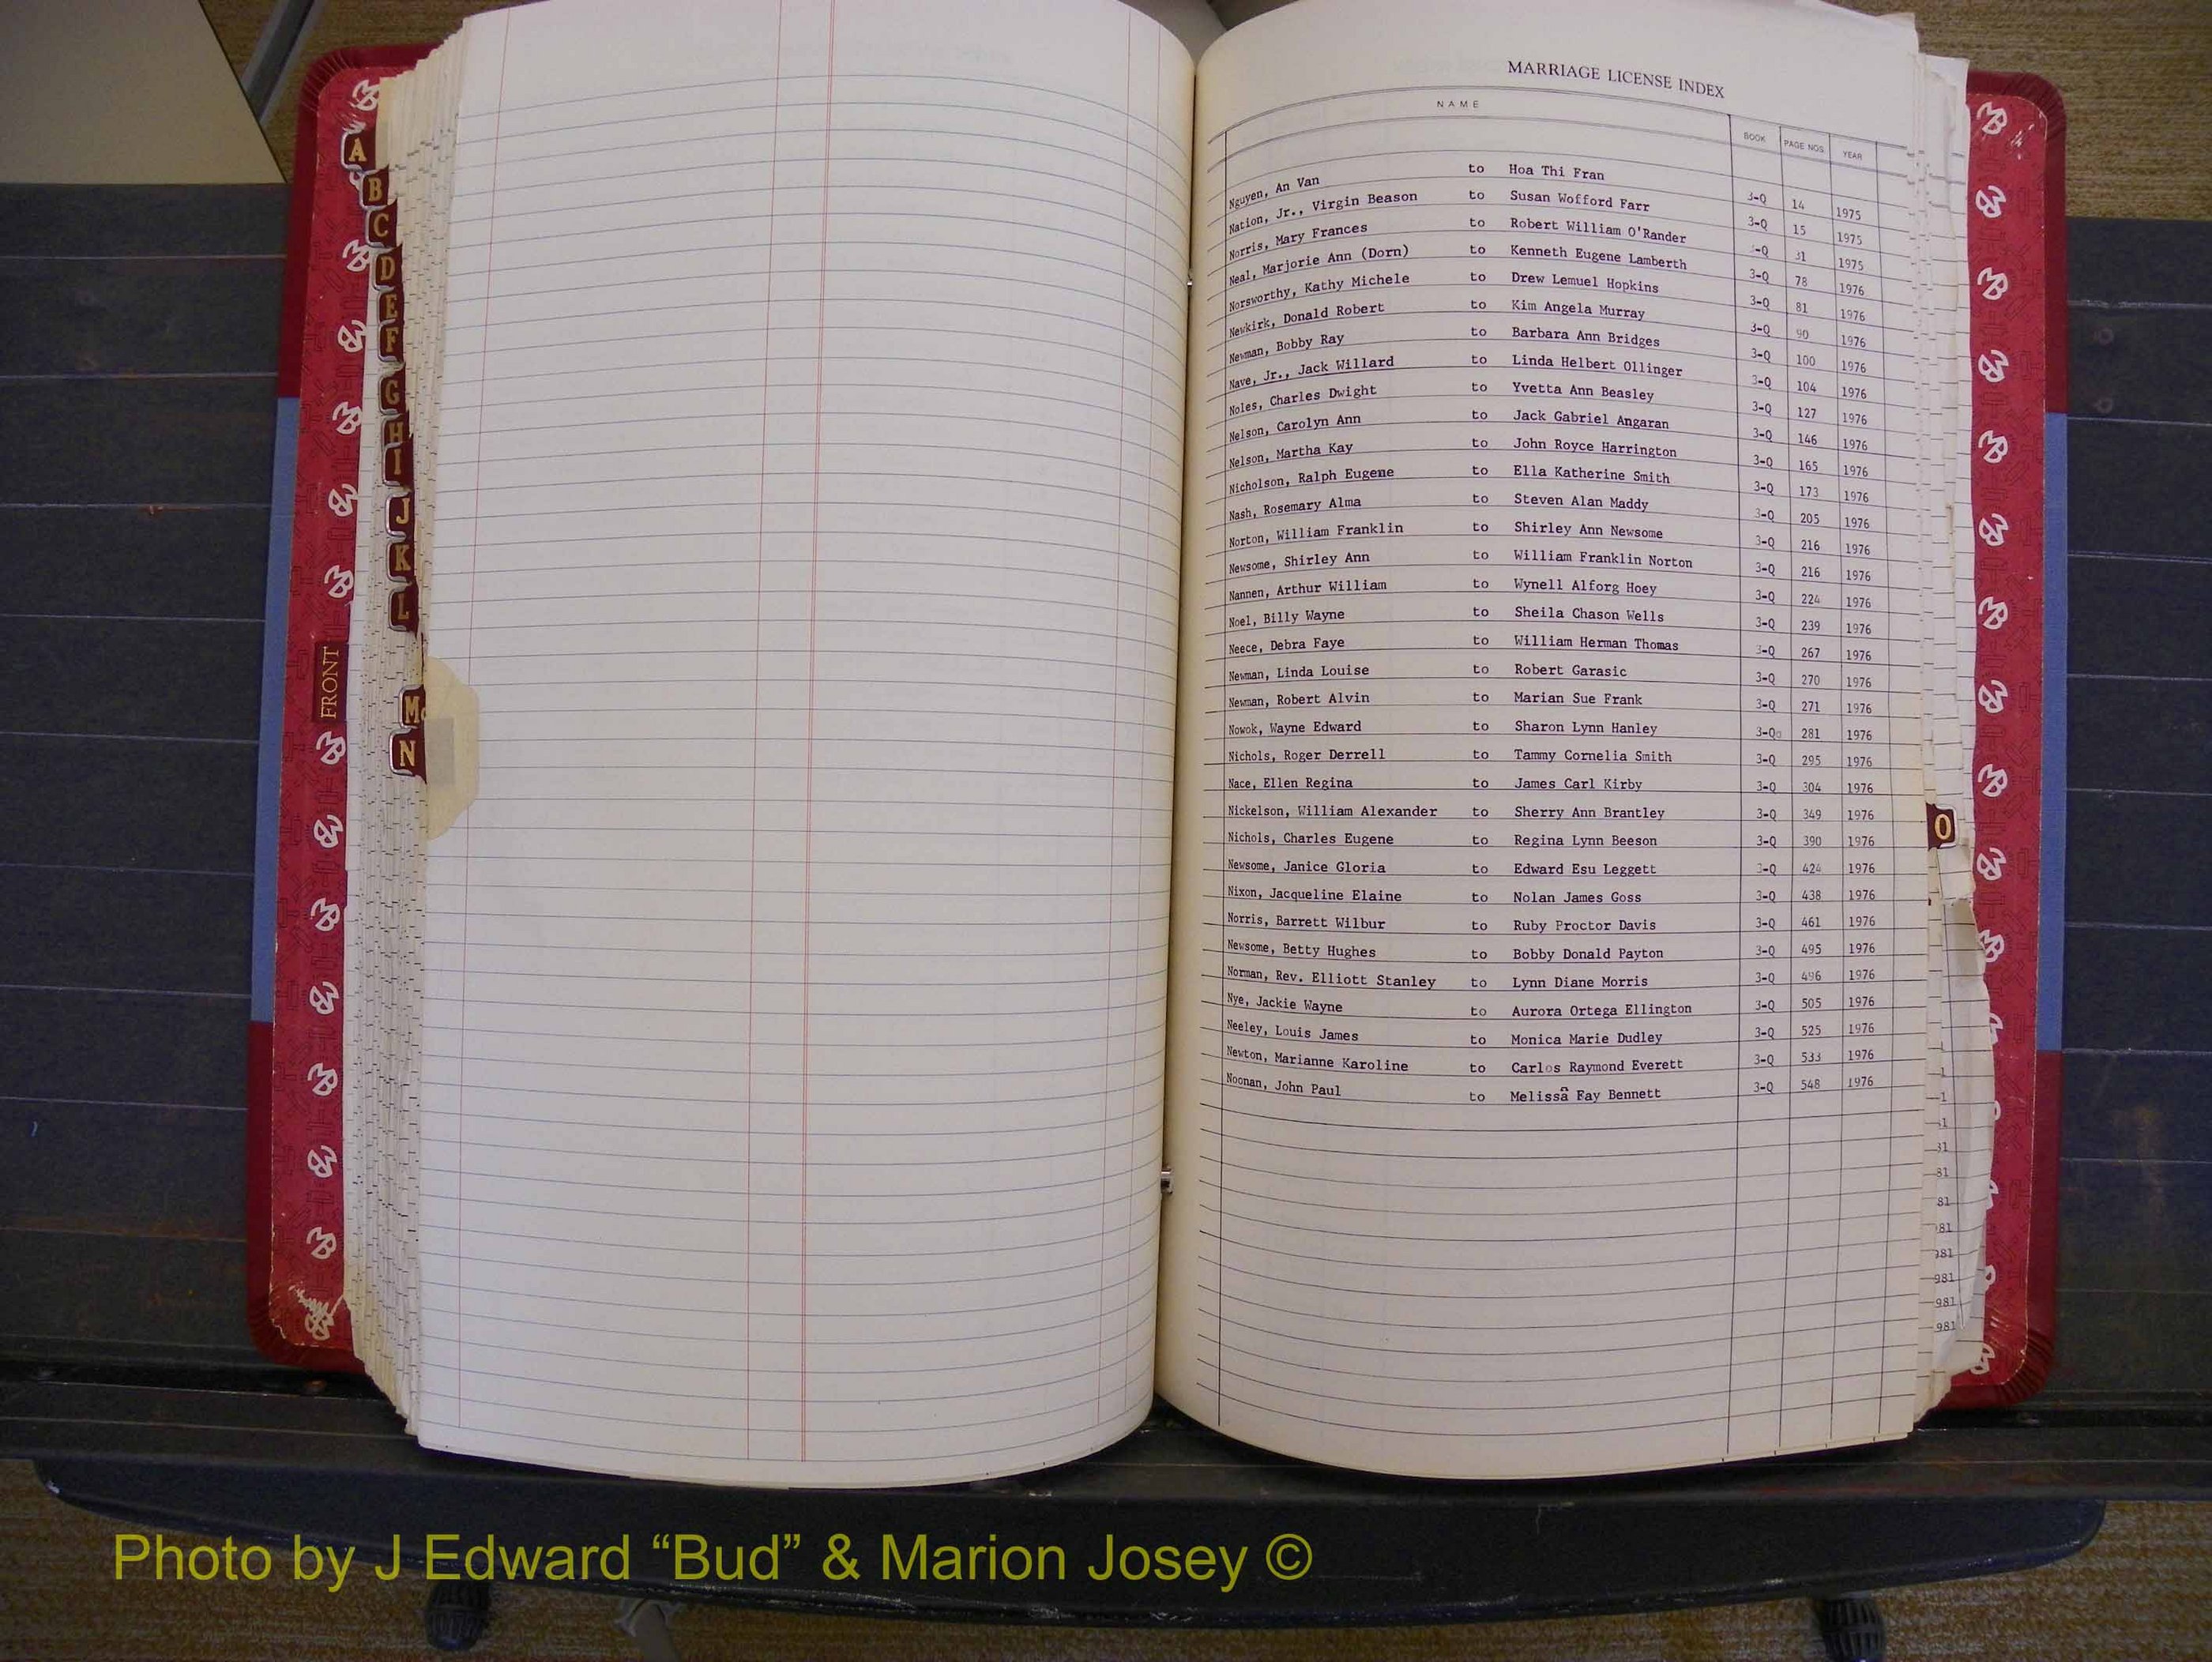 MARRIAGE LICENSE INDEX
NAME BOOK PAGE NOS. YEAR
Nguyen, An Van to Hoa Thi Fran 3-Q 14 1975
Nation, Jr., Virgin Beason to Susan Wofford Farr 3-Q 15 1975
Norris, Mary Frances to Robert William O'Rander 3-Q 31 1975
Neal, Marjorie Ann (Dorn) to Kenneth Eugene Lamberth 3-Q 78 1976
Norsworthy, Kathy Michele to Drew Lemuel Hopkins 3-Q 81 1976
Newkirk, Donald Robert to Kim Angela Murray 3-Q 90 1976
Newman, Bobby Ray to Barbara Ann Bridges 3-Q 100 1976
Nave, Jr., Jack Willard to Linda Helbert Ollinger 3-Q 104 1976
Noles, Charles Dwight to Yvetta Ann Beasley 3-Q 127 1976
Nelson, Carolyn Ann to Jack Gabriel Angaran 3-Q 146 1976
Nelson, Martha Kay to John Royce Harrington 3-Q 165 1976
Nicholson, Ralph Eugene to Ella Katherine Smith 3-Q 173 1976
Nash, Rosemary Alma to Steven Alan Maddy 3-Q 205 1976
Norton, William Franklin to Shirley Ann Newsome 3-Q 216 1976
Newsome, Shirley Ann to William Franklin Norton 3-Q 216 1976
Nannen, Arthur William to Wynell Alforg Hoey 3-Q 224 1976
Noel, Billy Wayne to Sheila Chason Wells 3-Q 239 1976
Neece, Debra Faye to William Herman Thomas 3-Q 267 1976
Newman, Linda Louise to Robert Garasic 3-Q 270 1976
Newman, Robert Alvin to Marian Sue Frank 3-Q 271 1976
Nowok, Wayne Edward to Sharon Lynn Hanley 3-Q 281 1976
Nichols, Roger Derrell to Tammy Cornelia Smith 3-Q 295 1976
Nace, Ellen Regina to James Carl Kirby 3-Q 304 1976
Nickelson, William Alexander to Sherry Ann Brantley 3-Q 349 1976
Nichols, Charles Eugene to Regina Lynn Beeson 3-Q 390 1976
Newsome, Janice Gloria to Edward Esu Leggett 3-Q 424 1976
Nixon, Jacqueline Elaine to Nolan James Goss 3-Q 438 1976
Norris, Barrett Wilbur to Ruby Proctor Davis 3-Q 461 1976
Newsome, Betty Hughes to Bobby Donald Payton 3-Q 495 1976
Norman, Rev. Elliott Stanley to Lynn Diane Morris 3-Q 496 1976
Nye, Jackie Wayne to Aurora Ortega Ellington 3-Q 505 1976
Neeley, Louis James to Monica Marie Dudley 3-Q 525 1976
Newton, Marianne Karoline to Carlos Raymond Everett 3-Q 533 1976
Noonan, John Paul to Melissa Fay Bennett 3-Q 548 1976
A
B
C
D
E
F
G
H
I
J
K
L
FRONT
Mc
N
O
81
81
81
81
981
981
981
981
Photo by J Edward “Bud” & Marion Josey ©